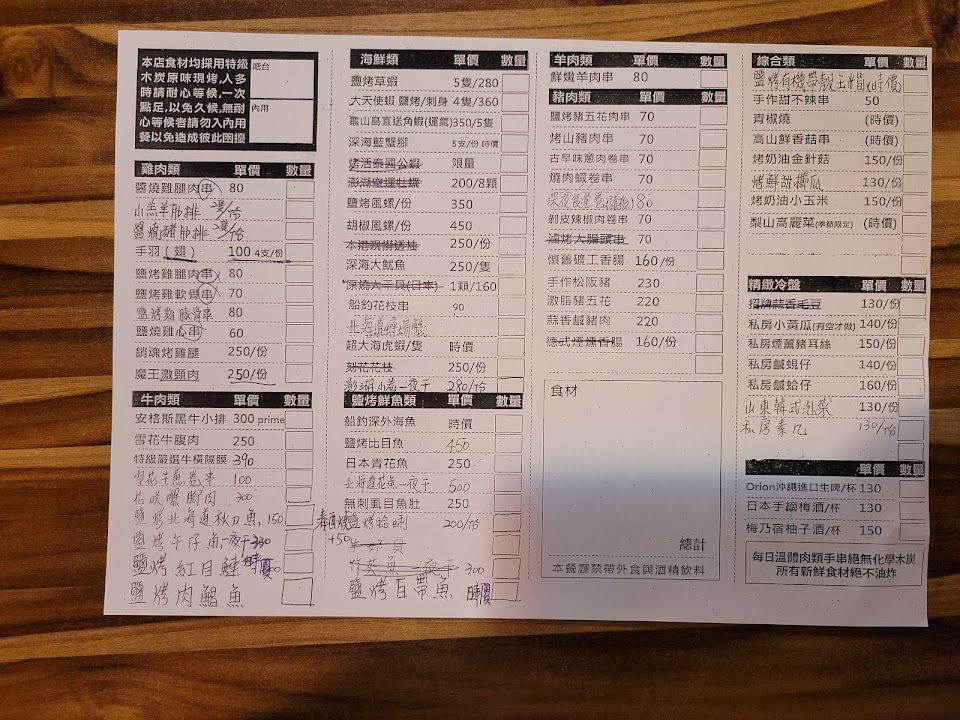 本店食材均採用特級
木炭原味現烤,人多
時請耐心等候,一次
點足,以免久候,無耐
心等候者請勿入內用
餐以免造成彼此困擾
吧台
內用
雞肉類 單價 數量
醬燒雞腿肉串 80
小羔羊肋排
醬燒豬肋排
手羽(翅) 100 4支/份
鹽烤雞腿肉串 80
鹽烤雞軟骨串 70
鹽烤雞膝骨串 80
鹽燒雞心串 60
銷魂烤雞腿 250/份
魔王激頸肉 250/份
牛肉類 單價 數量
安格斯黑牛小排 300 prime
雪花牛腹肉 250
特級嚴選牛橫隔膜 390
雪花生蔥卷串 100
花咲蟹腳肉 300
鹽烤北海道秋刀魚 150
鹽烤午仔魚一夜干 330
鹽烤紅目鰱 時價
鹽烤肉鯧魚
海鮮類 單價 數量
鹽烤草蝦 5隻/280
大天使蝦 鹽烤/刺身 4隻/360
龜山島直送角蝦(運氣)350/5隻
深海藍蟹腳 5支/份 時價
烤活泰國公蝦 限量
澎湖空運牡蠣 200/8顆
鹽烤風螺/份 350
胡椒風螺/份 450
本港現撈透抽 250/份
深海大魷魚 250/隻
原燒大干貝(日本) 1顆/160
船釣花枝串 90
超大海虎蝦/隻 時價
刻花花枝 250/份
澎湖小卷一夜干 280/份
鹽烤鮮魚類 單價 數量
船釣深外海魚 時價
鹽烤比目魚 450
日本青花魚 250
北海道花魚一夜干 500
無刺虱目魚肚 250
鹽烤蛤蜊 200/份
+50
一夜干 300
鹽烤白帶魚 時價
羊肉類 單價 數量
鮮嫩羊肉串 80
豬肉類 單價 數量
鹽烤豬五花肉串 70
烤山豬肉串 70
古早味蔥肉卷串 70
燒肉蝦卷串 70
80
剝皮辣椒肉卷串 70
滷烤大腸頭串 70
懷舊礦工香腸 160/份
手作松阪豬 230
激脂豬五花 220
蒜香鹹豬肉 220
德式煙燻香腸 160/份
食材
總計
本餐廳禁帶外食與酒精飲料
綜合類 單價 數量
鹽烤有機帶殼玉米筍(時價)
手作甜不辣串 50
青椒燒 (時價)
高山鮮香菇串 (時價)
烤奶油金針菇 150/份
烤鮮甜櫛瓜 130/份
烤奶油小玉米 150/份
梨山高麗菜(季節限定) (時價)
精緻冷盤 單價 數量
招牌蒜香毛豆 130/份
私房小黃瓜(有空才做) 140/份
私房煙薰豬耳絲 150/份
私房鹹蜆仔 140/份
私房鹹蛤仔 160/份
山東韓式泡菜
私房素几 130/份
單價 數量
Orion沖繩進口生啤/杯 130
日本手摘梅酒/杯 130
梅乃宿柚子酒/杯 150
每日溫體肉類手串絕無化學木炭
所有新鮮食材絕不油炸